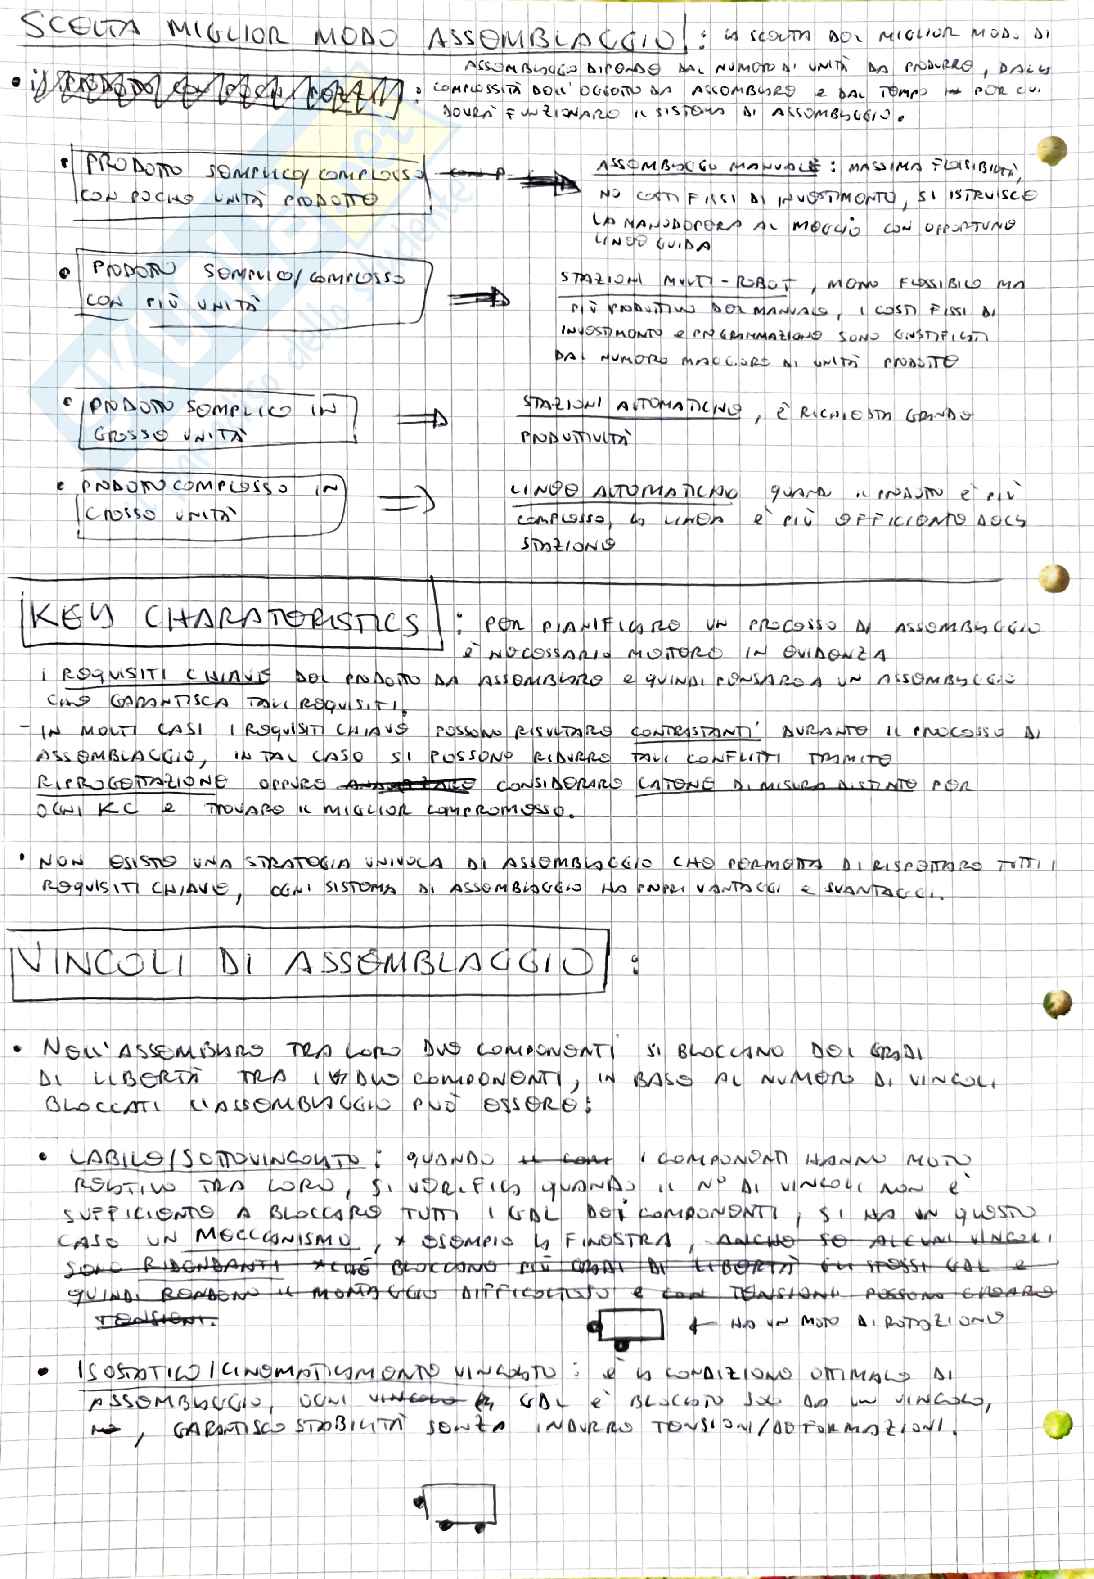 SCELTA MIGLIOR MODO ASSEMBLAGGIO : LA SCELTA DEL MIGLIOR MODO DI
ASSEMBLAGGIO DIPENDE DAL NUMERO DI UNITÀ DA PRODURRE, DALLA
COMPLESSITÀ DELL'OGGETTO DA ASSEMBLARE E DAL TEMPO PER CUI
DOVRÀ FUNZIONARE IL SISTEMA DI ASSEMBLAGGIO.
• PRODOTTO SEMPLICE/COMPLESSO
CON POCHE UNITÀ PRODOTTE
ASSEMBLAGGIO MANUALE : MASSIMA FLESSIBILITÀ,
NO COSTI FISSI DI INVESTIMENTO, SI ISTRUISCE
LA MANODOPERA AL MEGLIO CON OPPORTUNE
LINEE GUIDA
• PRODOTTO SEMPLICE/COMPLESSO
CON PIÙ UNITÀ
STAZIONI MULTI-ROBOT, MENO FLESSIBILE MA
PIÙ PRODUTTIVO DEL MANUALE, I COSTI FISSI DI
INVESTIMENTO E PROGRAMMAZIONE SONO GIUSTIFICATI
DAL NUMERO MAGGIORE DI UNITÀ PRODOTTE
• PRODOTTO SEMPLICE IN
GROSSE UNITÀ
STAZIONI AUTOMATICHE, È RICHIESTA GRANDE
PRODUTTIVITÀ
• PRODOTTO COMPLESSO IN
GROSSE UNITÀ
LINEE AUTOMATICHE QUANDO IL PRODOTTO È PIÙ
COMPLESSO, LA LINEA È PIÙ EFFICIENTE DELLA
STAZIONE
KEY CHARATERISTICS : PER PIANIFICARE UN PROCESSO DI ASSEMBLAGGIO
È NECESSARIO METTERE IN EVIDENZA
I REQUISITI CHIAVE DEL PRODOTTO DA ASSEMBLARE E QUINDI PENSARE A UN ASSEMBLAGGIO
CHE GARANTISCA TALI REQUISITI.
- IN MOLTI CASI I REQUISITI CHIAVE POSSONO RISULTARE CONTRASTANTI DURANTE IL PROCESSO DI
ASSEMBLAGGIO, IN TAL CASO SI POSSONO RIDURRE TALI CONFLITTI TRAMITE
RIPROGETTAZIONE OPPURE CONSIDERARE CATENE DI MISURA DISTINTE PER
OGNI KC E TROVARE IL MIGLIOR COMPROMESSO.
• NON ESISTE UNA STRATEGIA UNIVOCA DI ASSEMBLAGGIO CHE PERMETTA DI RISPETTARE TUTTI I
REQUISITI CHIAVE, OGNI SISTEMA DI ASSEMBLAGGIO HA PROPRI VANTAGGI E SVANTAGGI.
VINCOLI DI ASSEMBLAGGIO :
• NELL'ASSEMBLARE TRA LORO DUE COMPONENTI SI BLOCCANO DEI GRADI
DI LIBERTÀ TRA I DUE COMPONENTI, IN BASE AL NUMERO DI VINCOLI
BLOCCATI L'ASSEMBLAGGIO PUÒ ESSERE:
• LABILE/SOTTOVINCOLATO : QUANDO I COMPONENTI HANNO MOTO
RELATIVO TRA LORO, SI VERIFICA QUANDO IL N° DI VINCOLI NON È
SUFFICIENTE A BLOCCARE TUTTI I GDL DEI COMPONENTI, SI HA IN QUESTO
CASO UN MECCANISMO, * ESEMPIO LA FINESTRA, ANCHE SE ALCUNI VINCOLI
SONO RIDONDANTI * CHÉ BLOCCANO PIÙ GRADI DI LIBERTÀ GLI STESSI GDL E
QUINDI RENDONO IL MONTAGGIO DIFFICOLTOSO E CON TENSIONI POSSONO CREARE
TENSIONI.
← HA UN MOTO DI ROTAZIONE
• ISOSTATICO/CINEMATICAMENTE VINCOLATO : È LA CONDIZIONE OTTIMALE DI
ASSEMBLAGGIO, OGNI VINCOLO GDL È BLOCCATO SOLO DA UN VINCOLO,
, GARANTISCE STABILITÀ SENZA INDURRE TENSIONI/DEFORMAZIONI.